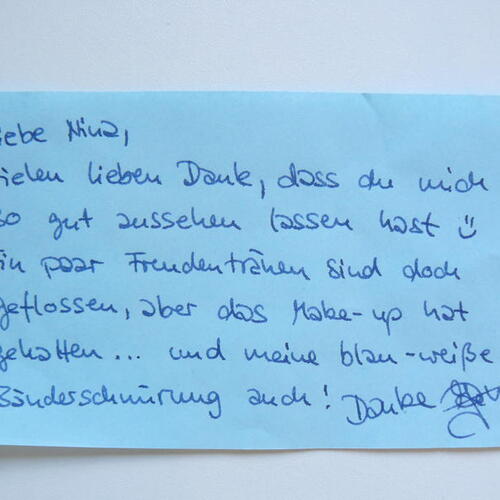 iebe Nina,
ielen lieben Dank, dass du mich
so gut aussehen lassen hast
in paar Freudentränen sind doch
geflossen, aber das Make-up hat
gehalten... und meine blau-weiße
Bänderschnürung auch! Danke